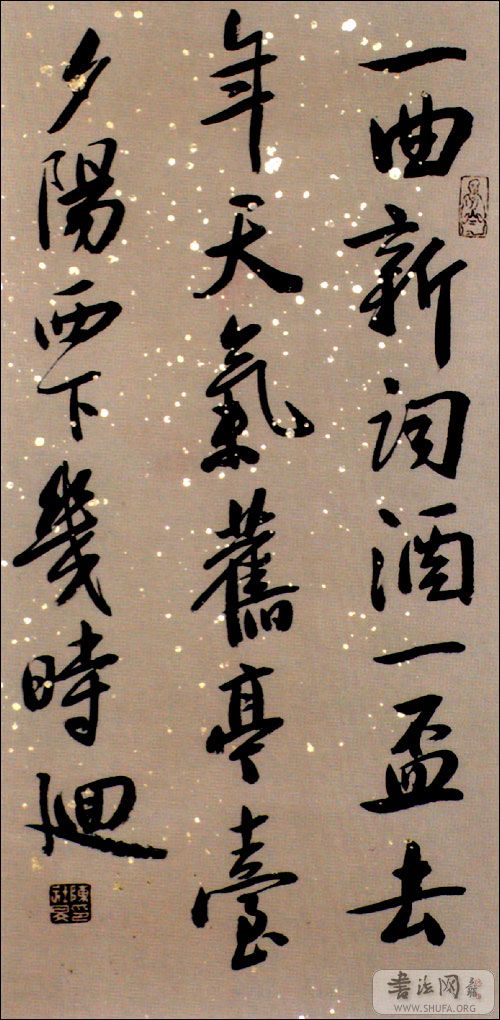 一曲新詞酒一盃去
年天氣舊亭臺
夕陽西下幾時迴
書法网
WWW.SHUFA.ORG